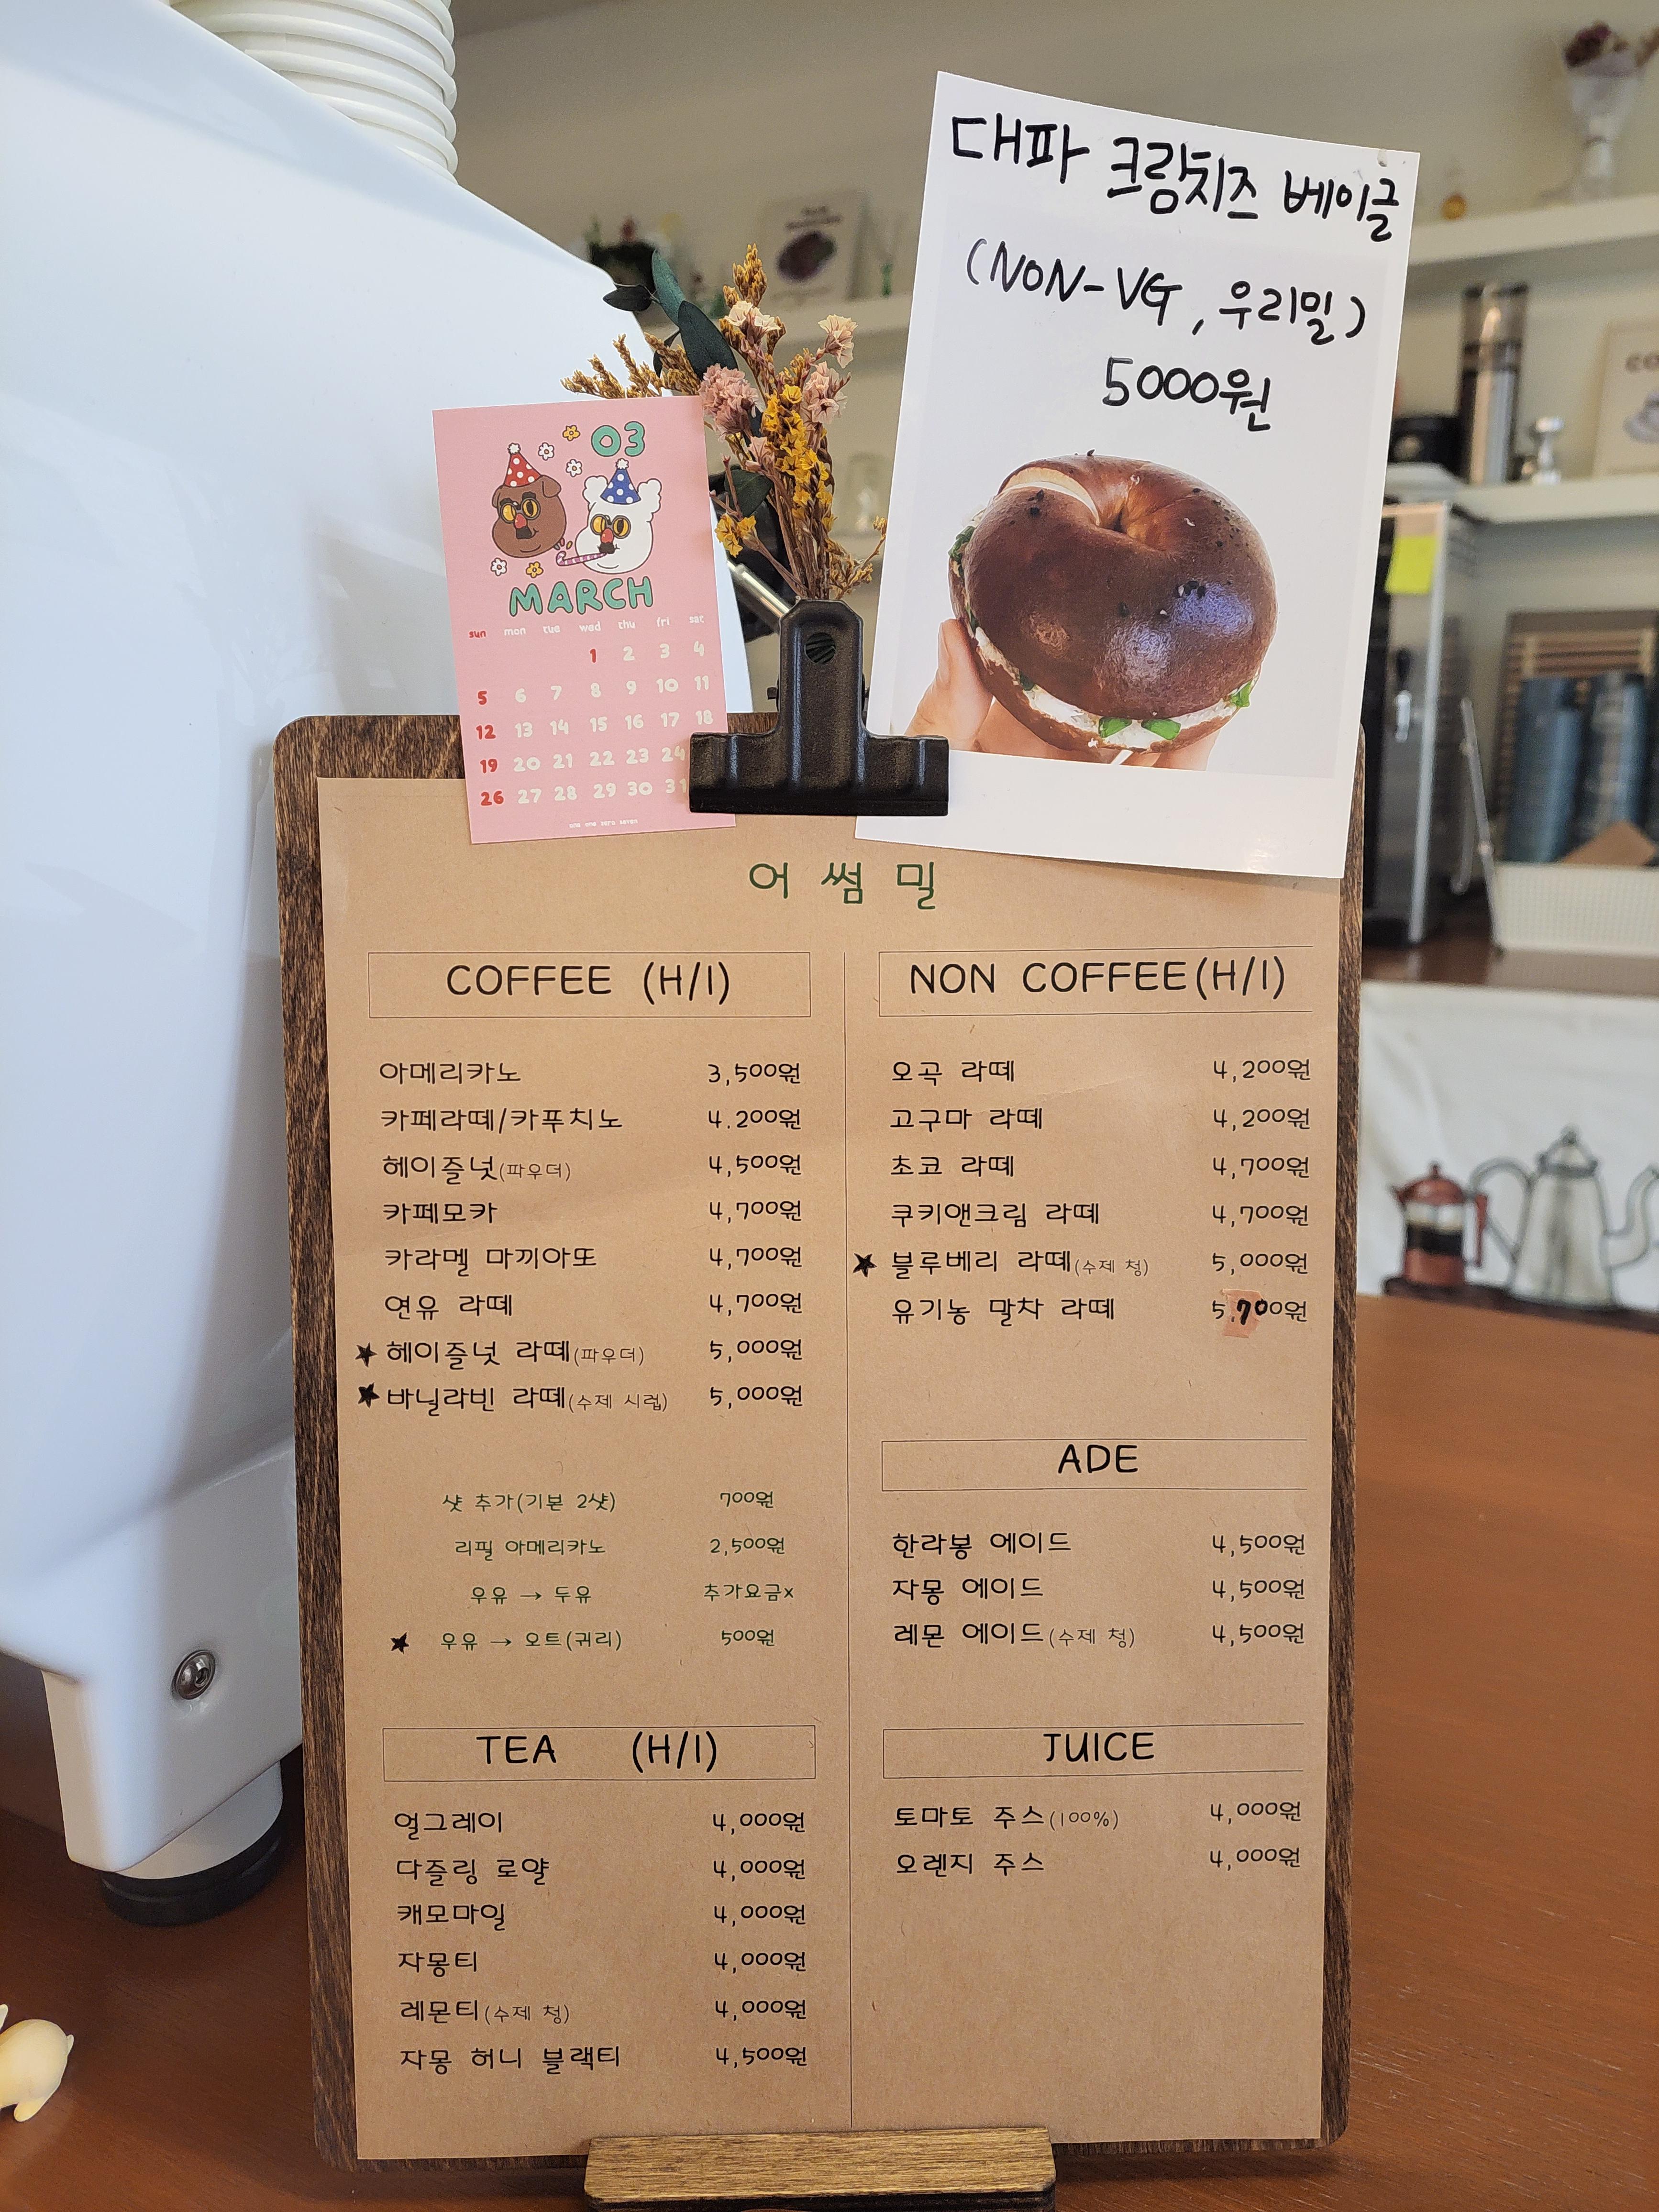 대파 크림치즈 베이글
(NON-VG, 우리밀)
5000원
03
MARCH
sun mon tue wed thu fri sat
1 2 3 4
5 6 7 8 9 10 11
12 13 14 15 16 17 18
19 20 21 22 23 24
26 27 28 29 30 31
one one zero seven
어썸밀
COFFEE (H/I)
아메리카노 3,500원
카페라떼/카푸치노 4.200원
헤이즐넛(파우더) 4,500원
카페모카 4,700원
카라멜 마끼아또 4,700원
연유 라떼 4,700원
★ 헤이즐넛 라떼(파우더) 5,000원
★ 바닐라빈 라떼(수제 시럽) 5,000원
샷 추가(기본 2샷) 700원
리필 아메리카노 2,500원
우유 → 두유 추가요금x
★ 우유 → 오트(귀리) 500원
TEA (H/I)
얼그레이 4,000원
다즐링 로얄 4,000원
캐모마일 4,000원
자몽티 4,000원
레몬티(수제 청) 4,000원
자몽 허니 블랙티 4,500원
NON COFFEE(H/I)
오곡 라떼 4,200원
고구마 라떼 4,200원
초코 라떼 4,700원
쿠키앤크림 라떼 4,700원
★ 블루베리 라떼(수제 청) 5,000원
유기농 말차 라떼 5,700원
ADE
한라봉 에이드 4,500원
자몽 에이드 4,500원
레몬 에이드(수제 청) 4,500원
JUICE
토마토 주스(100%) 4,000원
오렌지 주스 4,000원